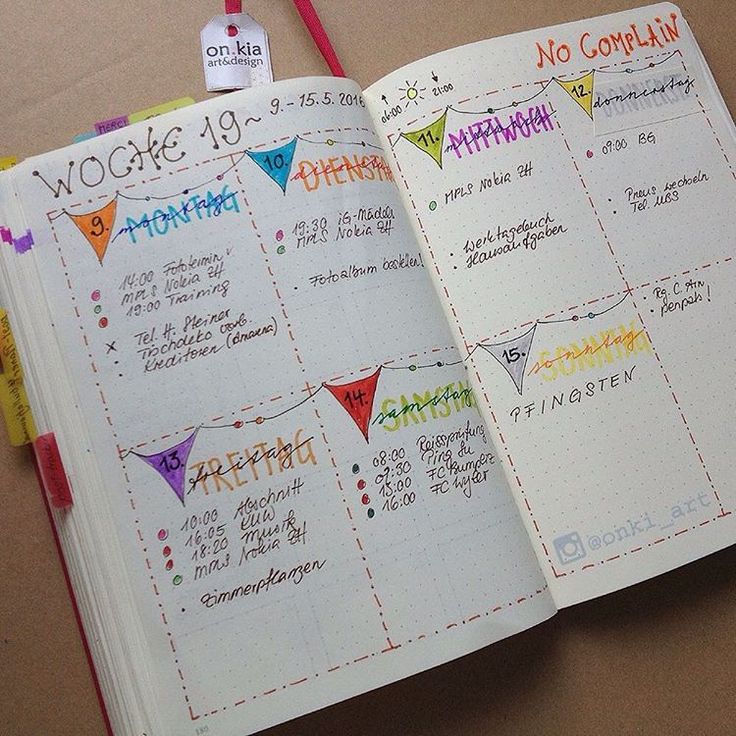 on.kia
art&design
MERCI
WOCHE 19~ 9.-15.5.2016
NO COMPLAIN
06:00 21:00
9. MONTAG
montag
14:00 Fototermin
MPLS Nokia ZH
19:00 Training
x Tel. H. Steiner
• Tischdeko vorb.
• Kreditoren
10. DIENSTAG
19:30 iG-Mädels
MPLS Nokia ZH
• Fotoalbum bestellen!
11. MITTWOCH
mittwoch
MPLS Nokia ZH
• Werktagebuch
• Hausaufgaben
12. DONNERSTAG
donnerstag
09:00 BG
• Pneus wechseln
• Tel. UBS
• Rg. C.
13. FREITAG
freitag
10:00 Abschnitt
16:05 KUW
18:20 Musik
MPLS Nokia ZH
• Zimmerpflanzen
14. SAMSTAG
samstag
08:00 Reissprüfung
09:30
15:00 FC
16:00 FC Wyler
15. SONNTAG
sonntag
PFINGSTEN
@onki_art